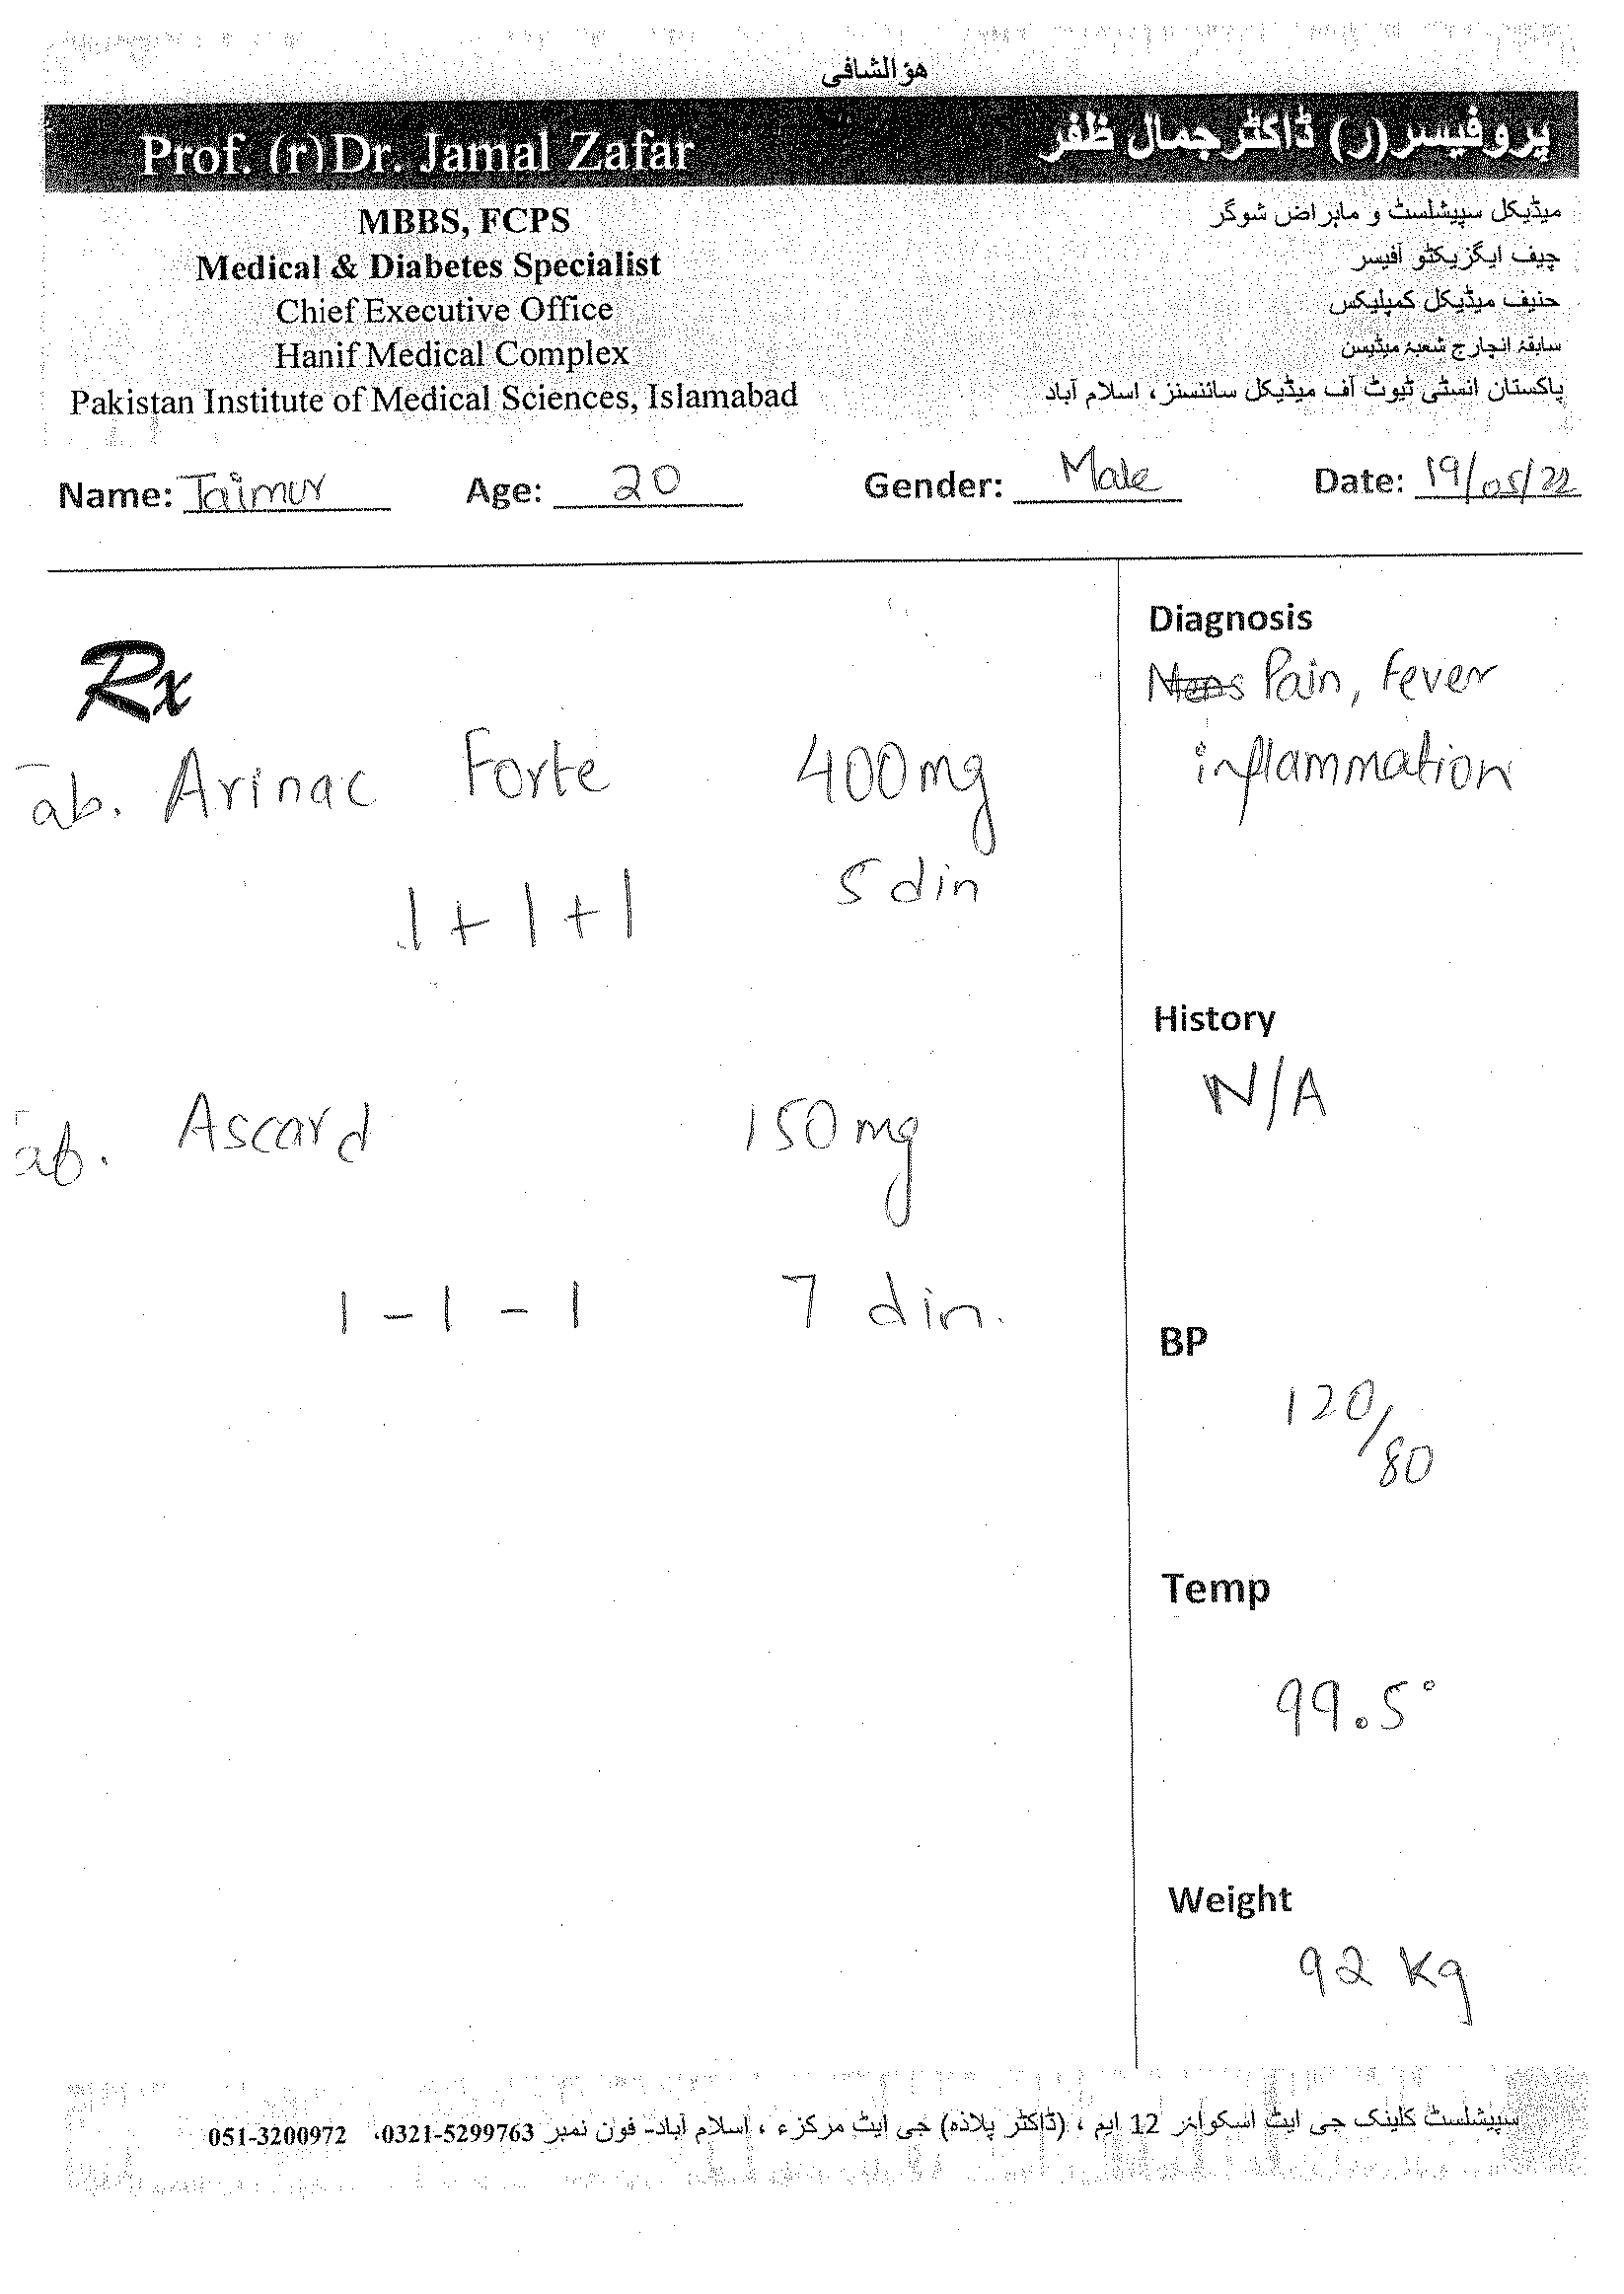 هو الشافی
Prof. (r) Dr. Jamal Zafar
پروفیسر (ر) ڈاکٹر جمال ظفر
MBBS, FCPS
Medical & Diabetes Specialist
Chief Executive Office
Hanif Medical Complex
Pakistan Institute of Medical Sciences, Islamabad
میڈیکل سپیشلسٹ و ماہر امراض شوگر
چیف ایگزیکٹو آفیسر
حنیف میڈیکل کمپلیکس
سابقہ انچارج شعبہ میڈیسن
پاکستان انسٹی ٹیوٹ آف میڈیکل سائنسز، اسلام آباد
Name: Taimur Age: 20 Gender: Male Date: 19/05/22
Rx
ab. Arinac Forte 400mg
1+1+1 5 din
ab. Ascard 150mg
1-1-1 7 din.
Diagnosis
Pain, fever
inflammation
History
N/A
BP
120/80
Temp
99.5°
Weight
92 Kg
سپیشلسٹ کلینک جی ایٹ اسکوائر 12 ایم ، (ڈاکٹر پلازہ) جی ایٹ مرکزء ، اسلام آباد- فون نمبر 0321-5299763، 051-3200972